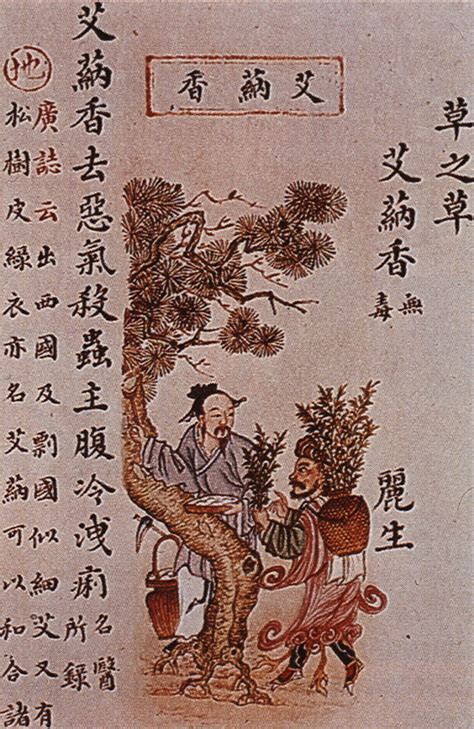 草之草
艾蒳香 無毒
麗生
艾蒳香
艾蒳香去惡氣殺蟲主腹冷洩痢 名醫所錄
地
廣誌云出西國及剽國似細艾又有
松樹皮綠衣亦名艾蒳可以和合諸